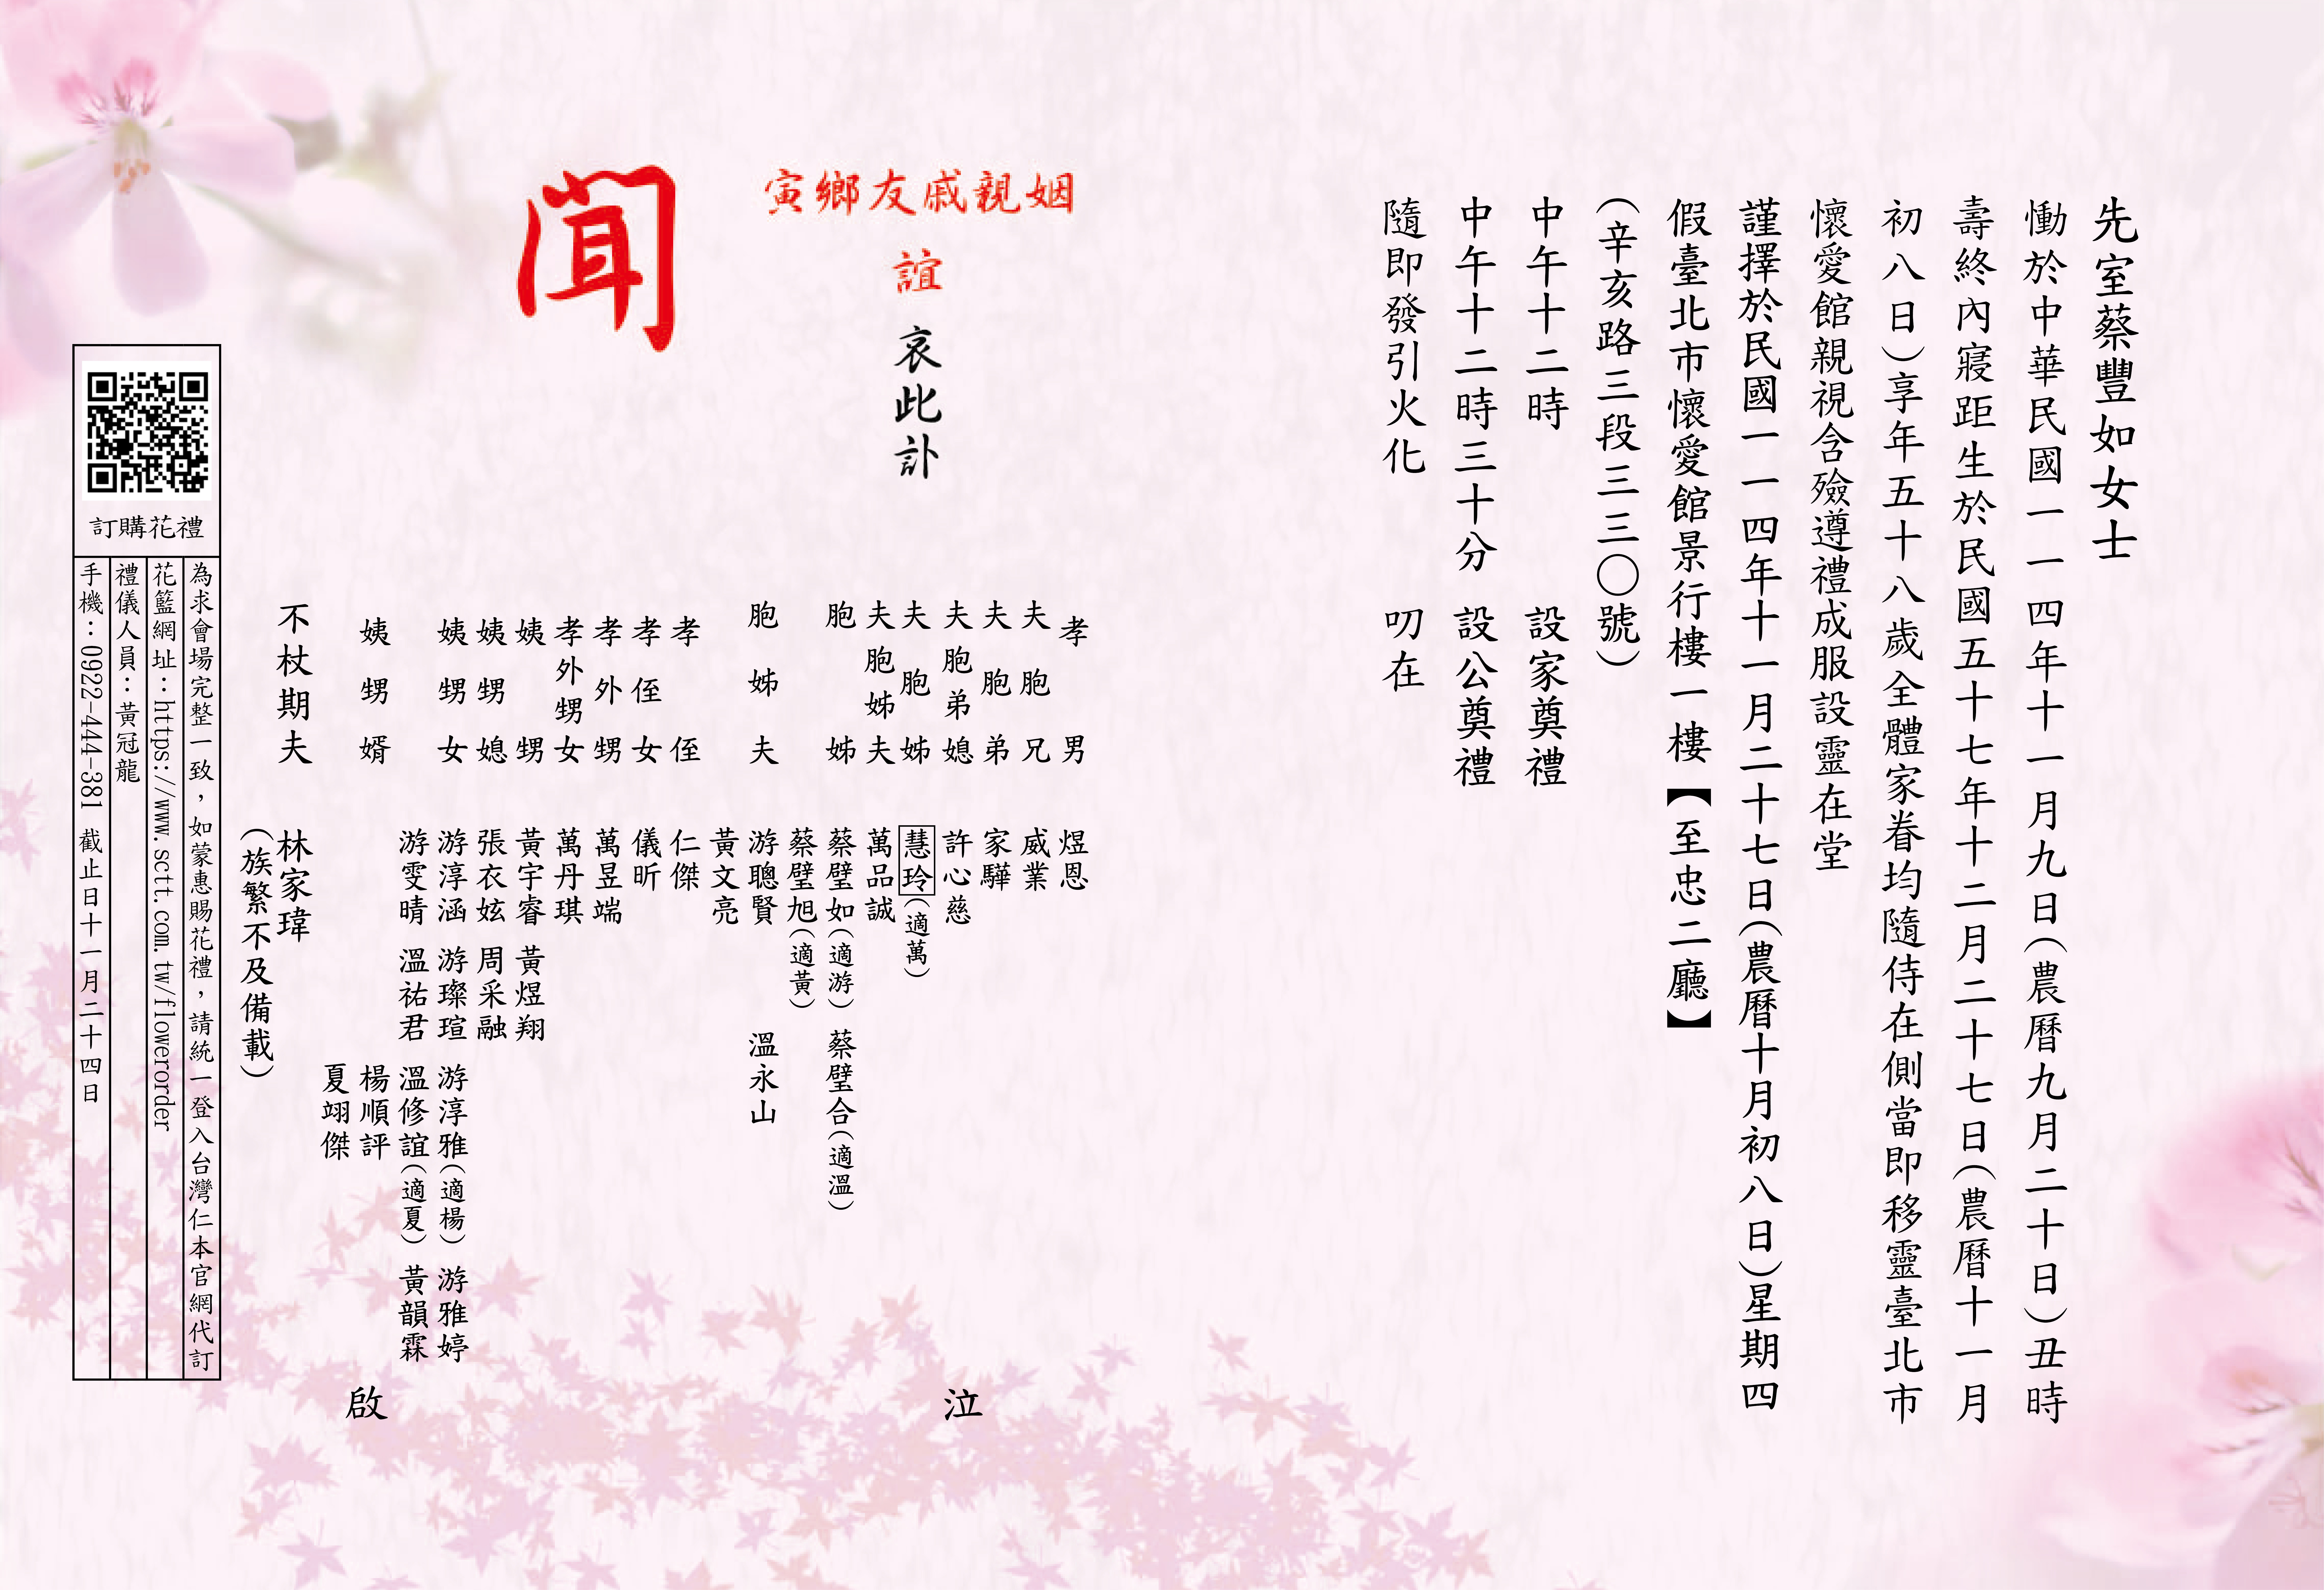 先室蔡豐如女士
慟於中華民國一一四年十一月九日(農曆九月二十日)丑時
壽終內寢距生於民國五十七年十二月二十七日(農曆十一月
初八日)享年五十八歲全體家眷均隨侍在側當即移靈臺北市
懷愛館親視含殮遵禮成服設靈在堂
謹擇於民國一一四年十一月二十七日(農曆十月初八日)星期四
假臺北市懷愛館景行樓一樓【至忠二廳】
(辛亥路三段三三〇號)
中午十二時 設家奠禮
中午十二時三十分 設公奠禮
隨即發引火化 叨在
寅鄉友戚親姻
誼
哀此訃
聞
孝男 煜恩
夫胞兄 威業
夫胞弟 家驊
夫胞弟媳 許心慈
夫胞姊 慧玲(適萬)
夫胞姊夫 萬品誠
胞姊 蔡璧如(適游) 蔡璧合(適溫)
蔡璧旭(適黃)
胞姊夫 游聰賢 溫永山
黃文亮
孝侄 仁傑
孝侄女 儀昕
孝外甥 萬昱端
孝外甥女 萬丹琪
姨甥 黃宇睿 黃煜翔
姨甥媳 張衣妶 周采融
姨甥女 游淳涵 游璨瑄 游淳雅(適楊) 游雅婷
游雯晴 溫祐君 溫修誼(適夏) 黃韻霖
姨甥婿 楊順評
夏翊傑
不杖期夫 林家瑋
(族繁不及備載)
泣
啟
訂購花禮
為求會場完整一致，如蒙惠賜花禮，請統一登入台灣仁本官網代訂
花籃網址：https://www.sctt.com.tw/flowerorder
禮儀人員：黃冠龍
手機：0922-444-381 截止日十一月二十四日